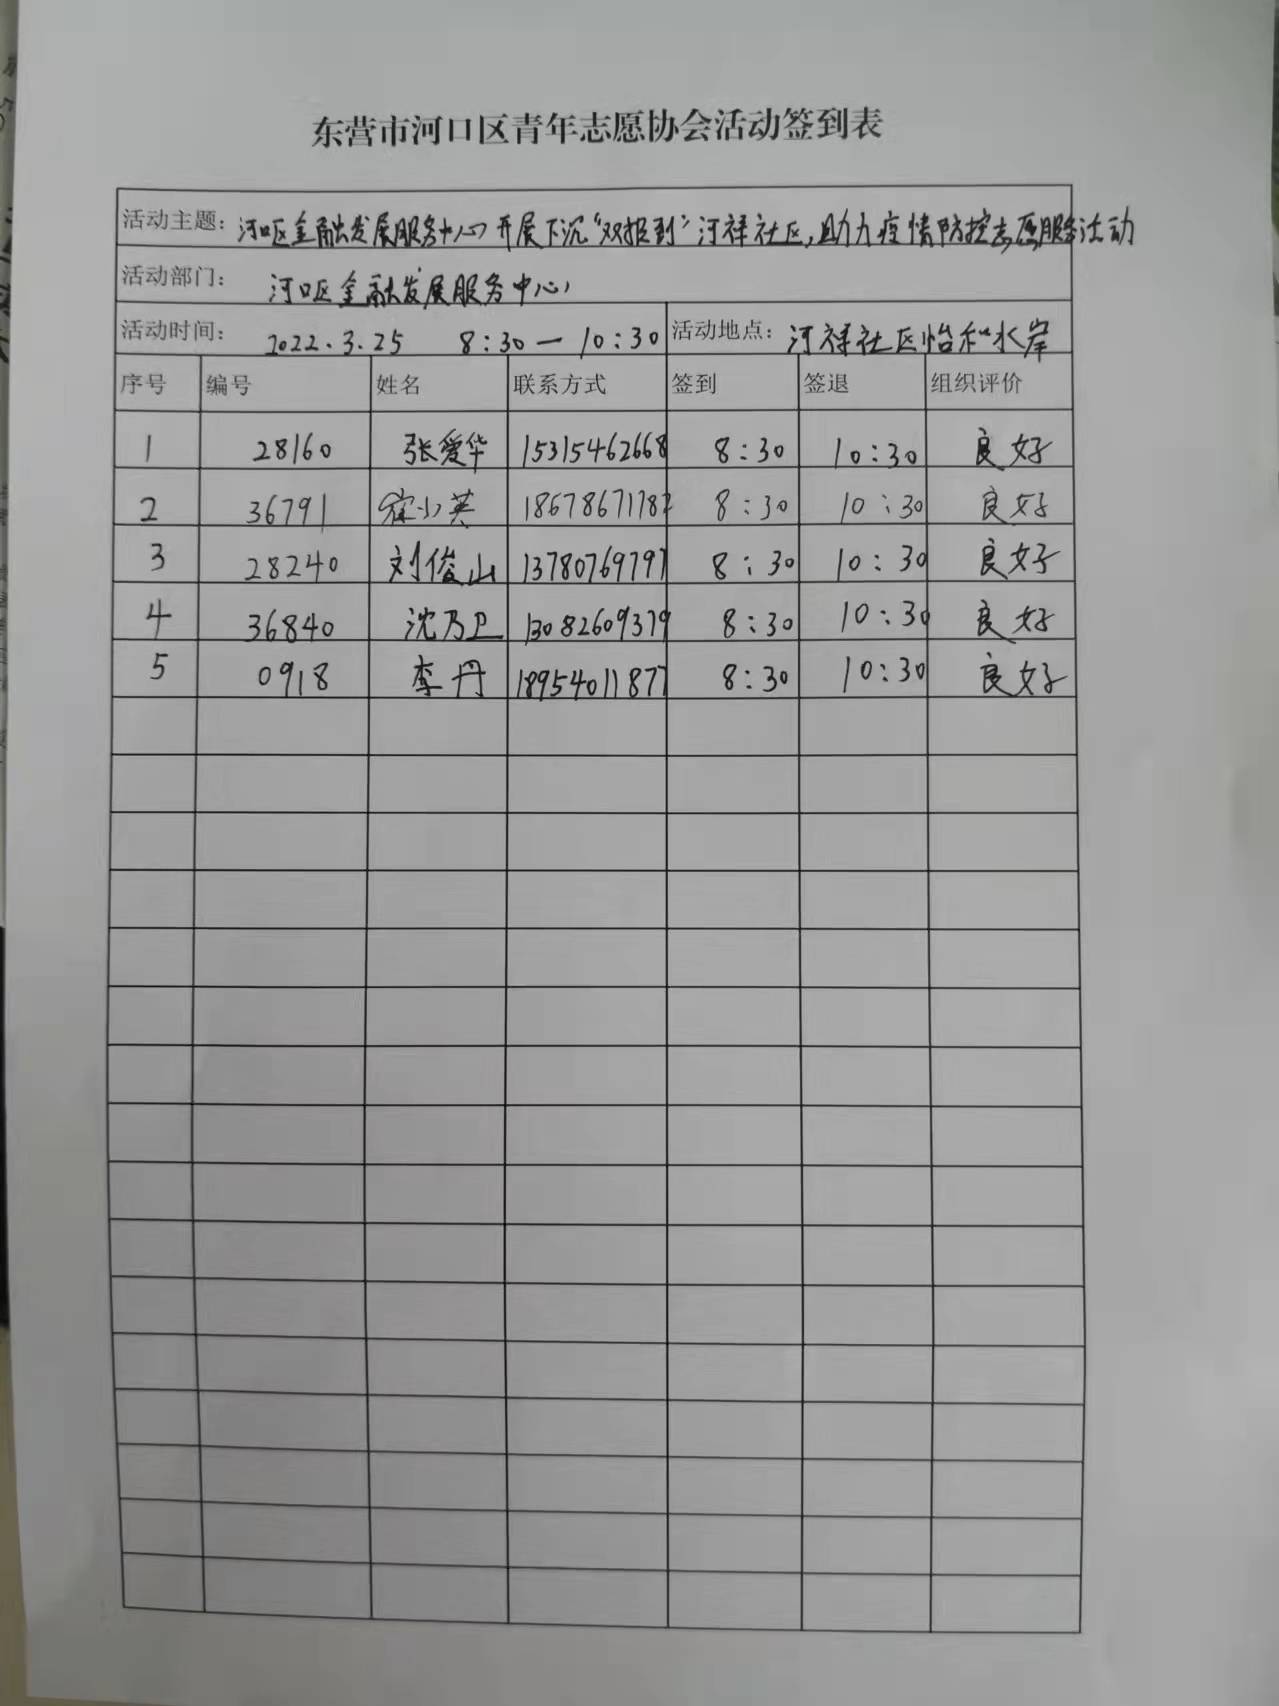 东营市河口区青年志愿协会活动签到表
活动主题: 河口区金融发展服务中心开展下沉“双报到”河祥社区,助力疫情防控志愿服务活动
活动部门: 河口区金融发展服务中心
活动时间: 2022.3.25 8:30—10:30 活动地点: 河祥社区怡和水岸
序号 编号 姓名 联系方式 签到 签退 组织评价
1 28160 张爱华 15315462668 8:30 10:30 良好
2 36791 小英 8:30 10:30 良好
3 28240 刘俊山 13780769797 8:30 10:30 良好
4 36840 沈乃卫 13082609379 8:30 10:30 良好
5 0918 李丹 18954011877 8:30 10:30 良好